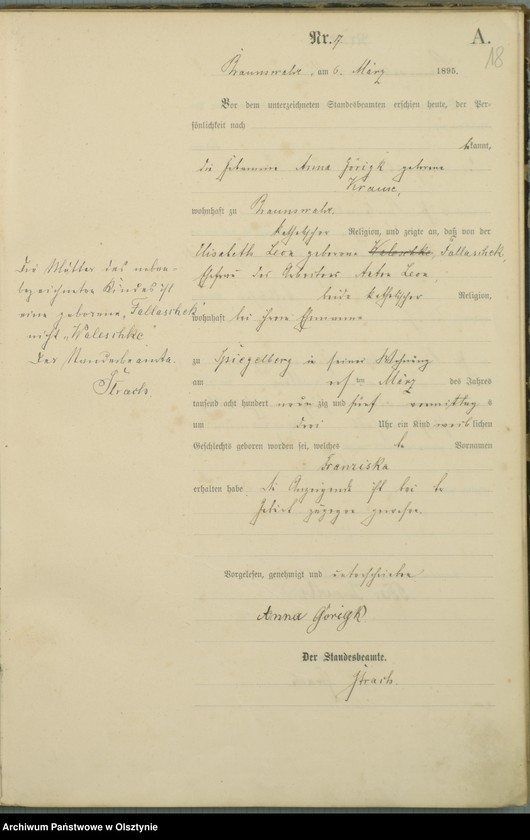 Nr. 9.
A.
18
Braunswalde, am 6. März 1895.
Vor dem unterzeichneten Standesbeamten erschien heute, der Per-
sönlichkeit nach
bekannt,
die Hebamme Anna Görigk geborene
Krause,
wohnhaft zu Braunswalde
katholischer Religion, und zeigte an, daß von der
Elisabeth geborene Fallaschek,
Ehefrau des Arbeiters
beide katholischer Religion,
wohnhaft bei ihrem Ehemanne
zu Spiegelberg in seiner Wohnung
am ten März des Jahres
tausend acht hundert neunzig und fünf vormittags
um drei Uhr ein Kind weiblichen
Geschlechts geboren worden sei, welches Vornamen
Franziska
erhalten habe. Die Anzeigende ist bei der
Geburt zugegen gewesen.
Vorgelesen, genehmigt und unterschrieben
Anna Görigk
Der Standesbeamte.
Strach.
Die Mutter des neben-
bezeichneten Kindes ist
eine geborene „Fallaschek"
nicht „Waleschke"
Der Standesbeamte.
Strach
Archiwum Państwowe w Olsztynie